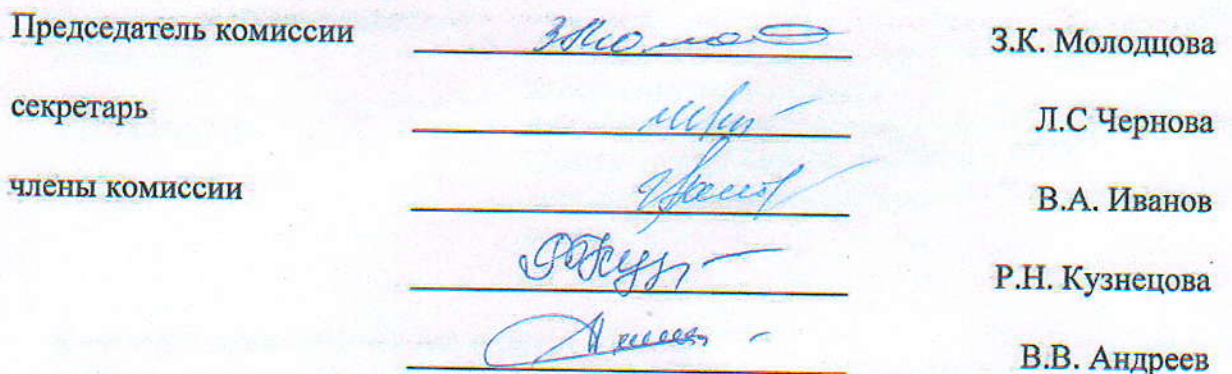 Председатель комиссии З.К. Молодцова
секретарь Л.С Чернова
члены комиссии В.А. Иванов
Р.Н. Кузнецова
В.В. Андреев